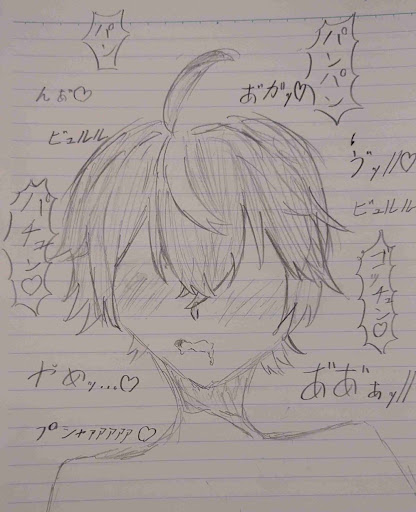 パン
パンパン
んお゛♡
お゛ガッ♡
ビュルル
ゔッ//♡
ビュルル
パチュン♡
ゴッチュン♡
やめッ…♡
あ゛あ゛ぁッ//
プシャァァァァァ♡